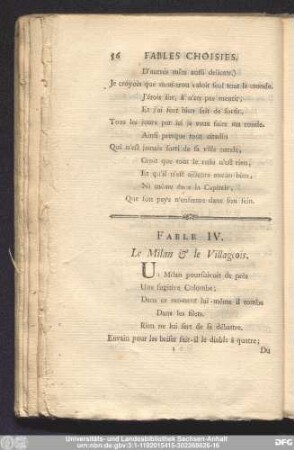 56 FABLES CHOISIES.
D'autres mets aussi delicats;)
Je croyois que mon trou valoit seul tout le monde.
J'étois sot, il n'en pas mentir;
Et j'ai fort bien fait de sortir.
Tous les jours par lui je veux faire ma ronde.
Ainsi presque tout citadin
Qui n'est jamais sorti de sa ville natale,
Croit que tout le reste n'est rien,
Et qu'il n'est ailleurs aucun bien,
Ni même dans la Capitale,
Que son pays n'enferme dans son sein.
FABLE IV.
Le Milan & le Villageois.
Un Milan poursuivoit de près
Une fugitive Colombe;
Dans ce moment lui-même il tombe
Dans les filets.
Rien ne lui sert de se débattre.
Envain pour les briser fait-il le diable à quatre;
Du
Universitäts- und Landesbibliothek Sachsen-Anhalt
urn:nbn:de:gbv:3:1-1192015415-302268626-16
DFG